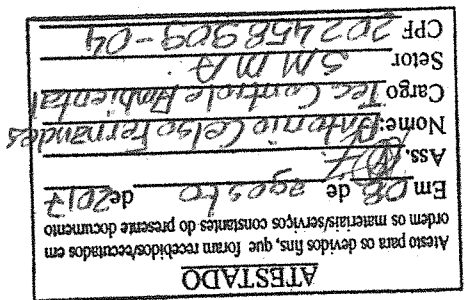 ATESTADO
Atesto para os devidos fins, que foram recebidos/executados em
ordem os materiais/serviços constantes do presente documento
Em 08 de agosto de 2017
Ass.
Nome: Antonio Celso Fernandes
Cargo Tec Controle Ambiental
Setor SMMA.
CPF 202458909-04